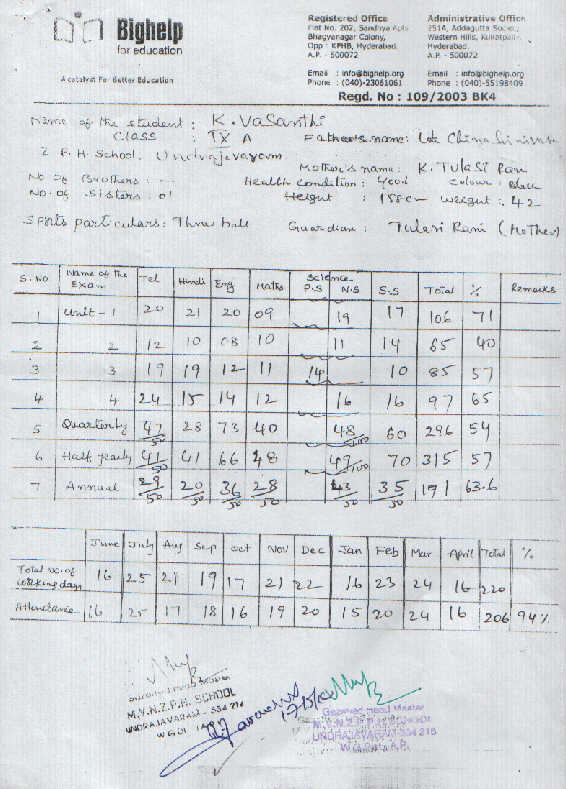 Bighelp
for education
A catalyst For Better Education
Registered Office
Flat No. 202, Sandhya Apts
Bhagyanagar Colony,
Opp : KPHB, Hyderabad.
A.P. - 500072
Email : info@bighelp.org
Phone : (040)-23061061
Administrative Office
Western Hills, Kukatpally,
Hyderabad.
A.P. - 500072
Email : info@bighelp.org
Phone : (040)-55198409
Regd. No : 109/2003 BK4
Name of the student : K. Vasanthi
Class : IX A Father's name: Late
Z P. H. School, Undrajavaram
Mother's name : K. Tulasi Rani
No of Brothers : --- Health Condition : Good Colour : Black
No. of Sisters : 01 Height : 158c Weight : 42
Sports particulars : Throw ball Guardian : Tulasi Rani (Mother)
S. No Name of the Exam Tel Hindi Eng Maths Science P.S N.S S.S Total % Remarks
1 Unit - 1 20 21 20 09 19 17 106 71
2 2 12 10 08 10 11 14 65 40
3 3 19 19 12 11 14 10 85 57
4 4 24 15 14 12 16 16 97 65
5 Quarterly 47/50 28 73 40 48/100 60 296 54
6 Half yearly 41/50 41 66 48 47/100 70 315 57
7 Annual 29/50 20/50 36/50 28/50 43/50 35/50 191 63.6
June July Aug Sep Oct Nov Dec Jan Feb Mar April Total %
Total No. of working days 16 25 21 19 17 21 22 16 23 24 16 220
Attendance 16 25 17 18 16 19 20 15 20 24 16 206 94%
M.V.N.Z.P.P. SCHOOL
UNDRAJAVARAM - 534 216
W.G.Dt
Gazetted Head Master
M.V.N.Z.P.P. SCHOOL
UNDRAJAVARAM-534 216
W.G.Dt., A.P.